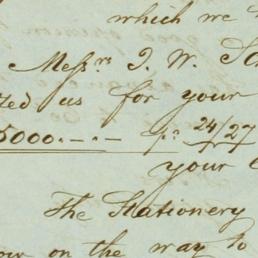 which we
Messrs J. W.
us for your
5000.-.- pr 24/27
your
The Stationery
on the way to